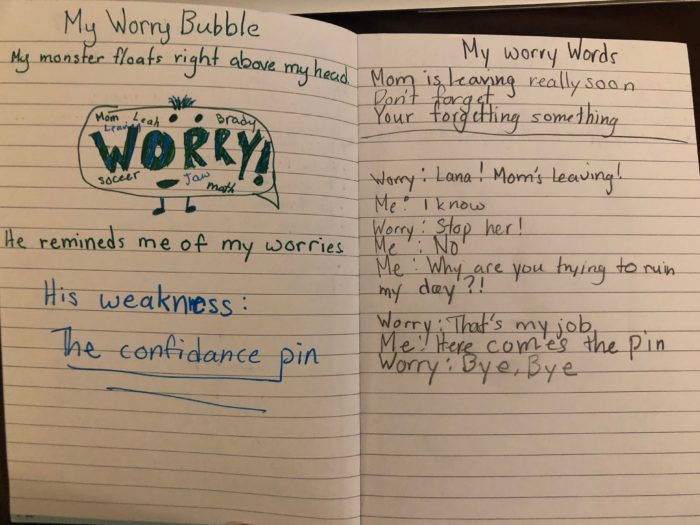 My Worry Bubble
My monster floats right above my head
Mom Leah Brady
Leaving
WORRY!
soccer Jaw math
He remineds me of my worries
His weakness:
The confidance pin
My worry Words
Mom is leaving really soon
Don't forget
Your forgetting something
Worry: Lana! Mom's leaving!
Me: I know
Worry: Stop her!
Me : No
Me : Why are you trying to ruin
my day?!
Worry: That's my job
Me: Here comes the pin
Worry: Bye, Bye